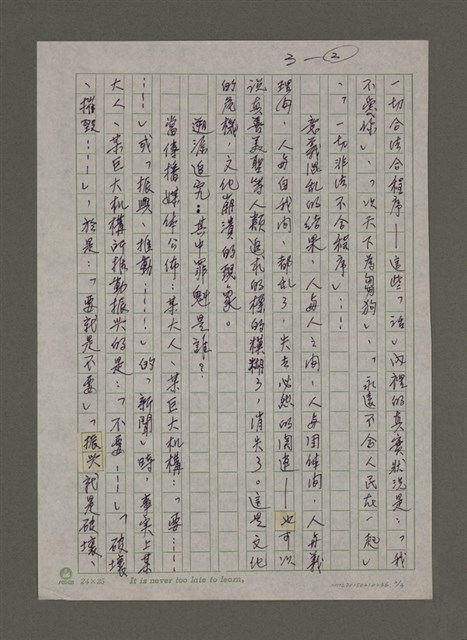 3—②
一切合法合程序——這些「話」內裡的真實狀況是:「我
不愛你」、「以天下為芻狗」、「永遠不會人民在一起」
、「一切非法不合程序」……
意義混亂的結果,人與人之間,人與團体間,人與義
理間,人與自我間,都亂了,失去必然的関連——也可以
說真善美聖等人類追求的標的模糊了,消失了。這是文化
的危機,文化崩潰的現象。
溯源追究:其中罪魁是誰?
當傳播媒体公佈:某大人、某巨大机構:「要……
……」或「振興、推動……」的「新聞」時,事實上某
大人、某巨大机構所推動振兴的是:「不要……」「破壞
、摧毀……」,於是:「要就是不要」「振兴就是破壞、
25×25
It is never too late to learn.